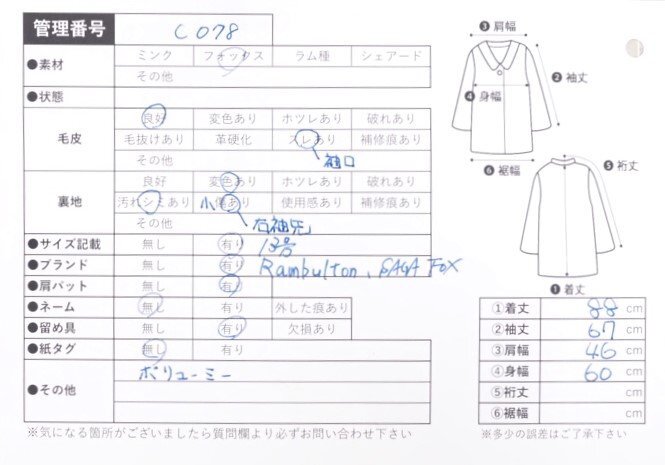 管理番号 C078
●素材 ミンク フォックス ラム種 シェアード
その他
●状態
毛皮 良好 変色あり ホツレあり 破れあり
毛抜けあり 革硬化 スレあり 補修痕あり
その他 袖口
裏地 良好 変色あり ホツレあり 破れあり
汚れシミあり 小傷あり 使用感あり 補修痕あり
その他 右袖先
●サイズ記載 無し 有り 13号
●ブランド 無し 有り Rambulton、SAGA FOX
●肩パット 無し 有り
●ネーム 無し 有り 外した痕あり
●留め具 無し 有り 欠損あり
●紙タグ 無し 有り
●その他 ボリューミー
※気になる箇所がございましたら質問欄より必ずお問い合わせ下さい
❸肩幅
❷袖丈
❹身幅
❻裾幅
❺裄丈
❶着丈
①着丈 88 cm
②袖丈 67 cm
③肩幅 46 cm
④身幅 60 cm
⑤裄丈 cm
⑥裾幅 cm
※多少の誤差はご了承下さい